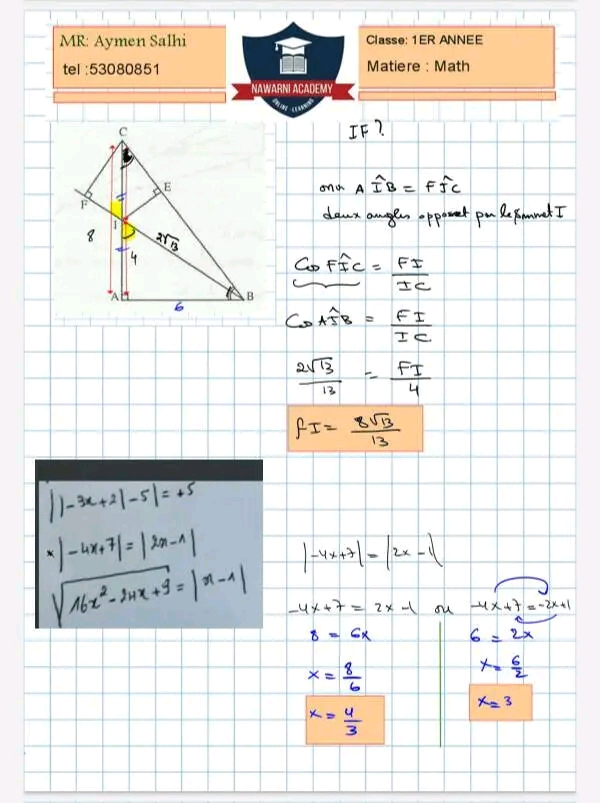 MR: Aymen Salhi
tel :53080851
NAWARNI ACADEMY
ONLINE - LEARNING
Classe: 1ER ANNEE
Matiere : Math
C
E
F
I
8
2√13
4
A
6
B
IF ?
on a AÎB = FÎC
deux angles opposet par le sommet I
Cos FÎC = FI/IC
Cos AÎB = FI/IC
2√13/13 = FI/4
fI = 8√13/13
||-3x+2|-5| = +5
* |-4x+7| = |2x-1|
√16x²-24x+9 = |x-1|
|-4x+7| = |2x-1|
-4x+7 = 2x-1 ou -4x+7 = -2x+1
8 = 6x 6 = 2x
x = 8/6 x = 6/2
x = 4/3 x = 3